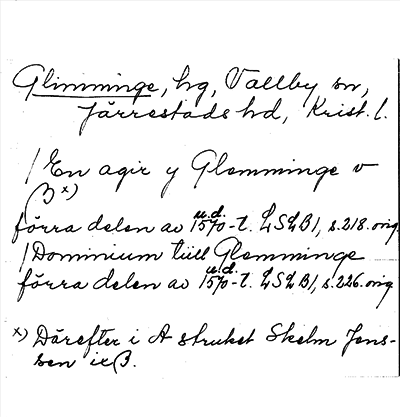 Glimminge, hg, Vallby sn,
Järrestads hd, Krist. l.
/ En agir y Glemminge v
β x)
u.d.
förra delen av 1570-t. LSLB1, s.218. orig
/ Dominium tiill Glemminge
u.d.
förra delen av 1570-t. LSLB1, s.226. orig
x) Därefter i A struket Skelm Jens-
sen ix β.